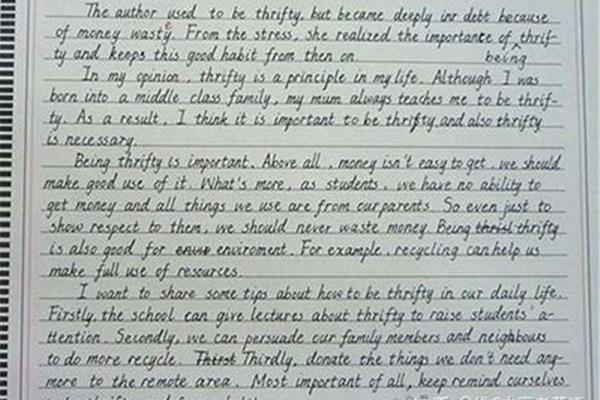 The author used to be thrifty, but became deeply inr debt because
of money wasty. From the stress, she realized the importance of being thrif-
ty and keeps this good habit from then on.
In my opinion, thrifty is a principle in my life. Although I was
born into a middle class family, my mum always teaches me to be thrif-
ty. As a result, I think it is important to be thrifty and also thrifty
is necessary.
Being thrifty is important. Above all, money isn't easy to get, we should
make good use of it. What's more, as students, we have no ability to
get money and all things we use are from our parents. So even just to
show respect to them, we should never waste money. Being thrist thrifty
is also good for enviro enviroment. For example, recycling can help us
make full use of resources.
I want to share some tips about how to be thrifty in our daily life.
Firstly, the school can give lectures about thrifty to raise students' a-
ttention. Secondly, we can persuade our family members and neighbours
to do more recycle. Thirst Thirdly, donate the things we don't need any-
more to the remote area. Most important of all, keep remind ourselves